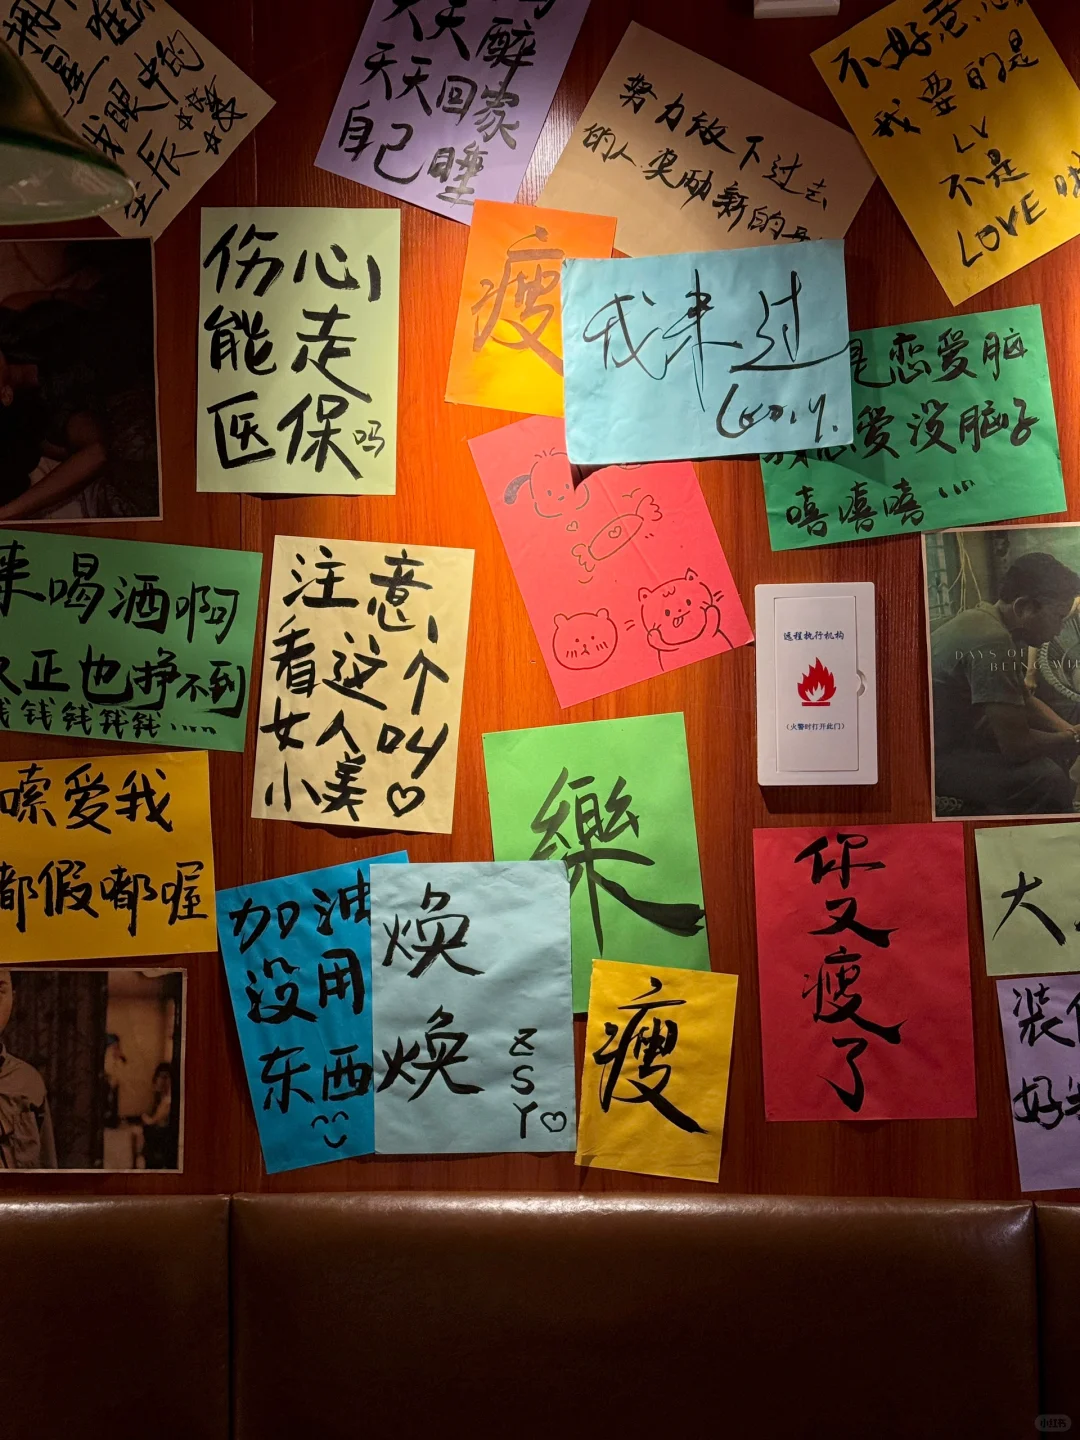 我眼中的
星辰
天天醉
天天回家
自己睡
努力放下过去
的人奖励新的
不好意思
我要的是
LV
不是
LOVE
伤心
能走
医保吗
瘦
我来过
恋爱脑
爱没脑子
嘻嘻嘻...
来喝酒啊
正也挣不到
钱钱钱钱钱....
注意
看这个
女人叫
小美♡
远程执行机构
(火警时打开此门)
DAYS OF
BEING WI
嗦爱我
都假嘟喔
樂
加油
没用
东西
焕
焕
Z
S
Y♡
瘦
你
又
瘦
了
大
装
好